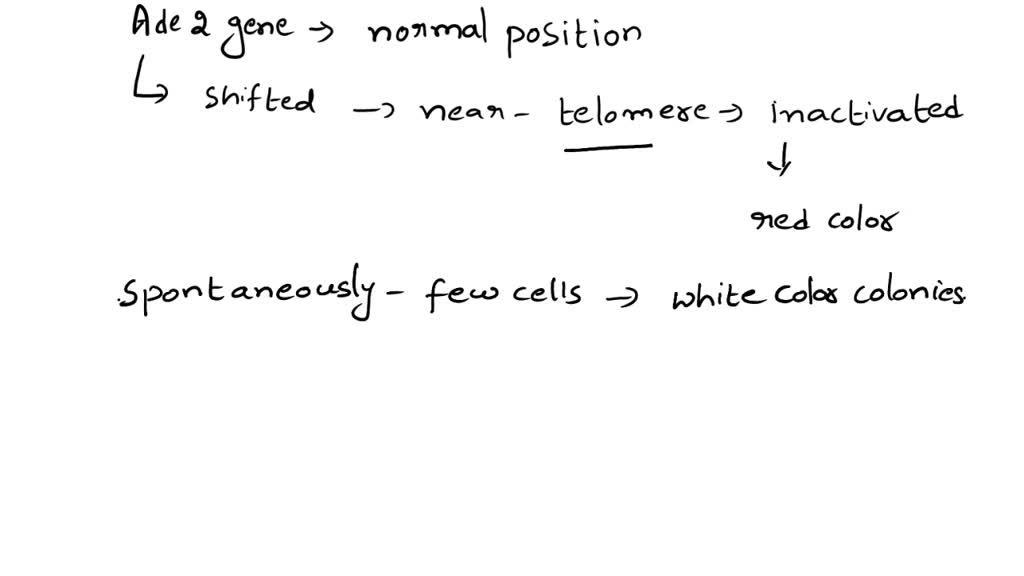 Ade 2 gene → normal position
↳ shifted → near - telomere → inactivated
↓
red color
spontaneously - few cells → white color colonies.